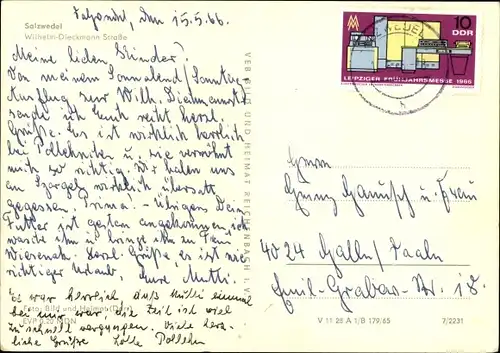 Salzwedel
Wilhelm-Dieckmann Straße
Salzwedel, den 15.5.66.
Meine lieben Kinder!
Von meinem Sonnabend/Sonntag
Ausflug zur Wilh. Dieckmannstr
sende ich Euch recht herzl.
Grüße. Es ist wirklich herrlich
bei u. sie verwöhnt
mich so richtig. Wir haben uns
an Spargel wirklich übersatt
gegessen. Prima! – Übrigens Dein
Futter ist gestern angekommen, ich
werde ihn u. bringe ihn zu Frau
Herzl. Grüße, es ist wie
richtiger Urlaub, Eure Mutti.
Es war herrlich, daß Mutti einmal
bei mir war, die Zeit ist viel
zu schnell vergangen. Viele herz-
liche Grüße Lotte
Foto: Bild und Heimat
EVP 0,20 MDN
VEB BILD UND HEIMAT REICHENBACH i. V.
10
DDR
LEIPZIGER FRÜHJAHRSMESSE 1966
Herrn
u. Frau
4024 Halle/Saale
Emil-Grabow-Str. 18.
V 11 28 A 1/B 179/65
7/2231